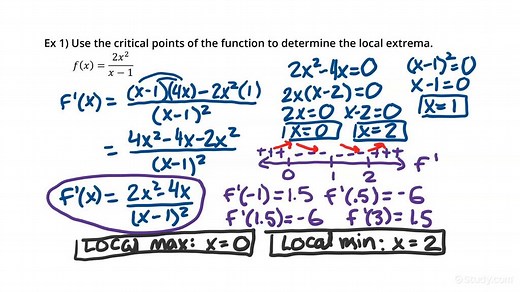 Ex 1) Use the critical points of the function to determine the local extrema.
f(x) = 2x²/(x − 1)
F'(x) = ((x-1)(4x) - 2x²(1))/(x-1)²
= (4x² - 4x - 2x²)/(x-1)²
F'(x) = (2x² - 4x)/(x-1)²
2x² - 4x = 0
2x(x-2) = 0
2x = 0 x-2 = 0
x = 0 x = 2
(x-1)² = 0
x-1 = 0
x = 1
+++ --- --- +++
0 1 2 F'
F'(-1) = 1.5 F'(.5) = -6
F'(1.5) = -6 F'(3) = 1.5
Local max: x = 0 Local min: x = 2
Study.com